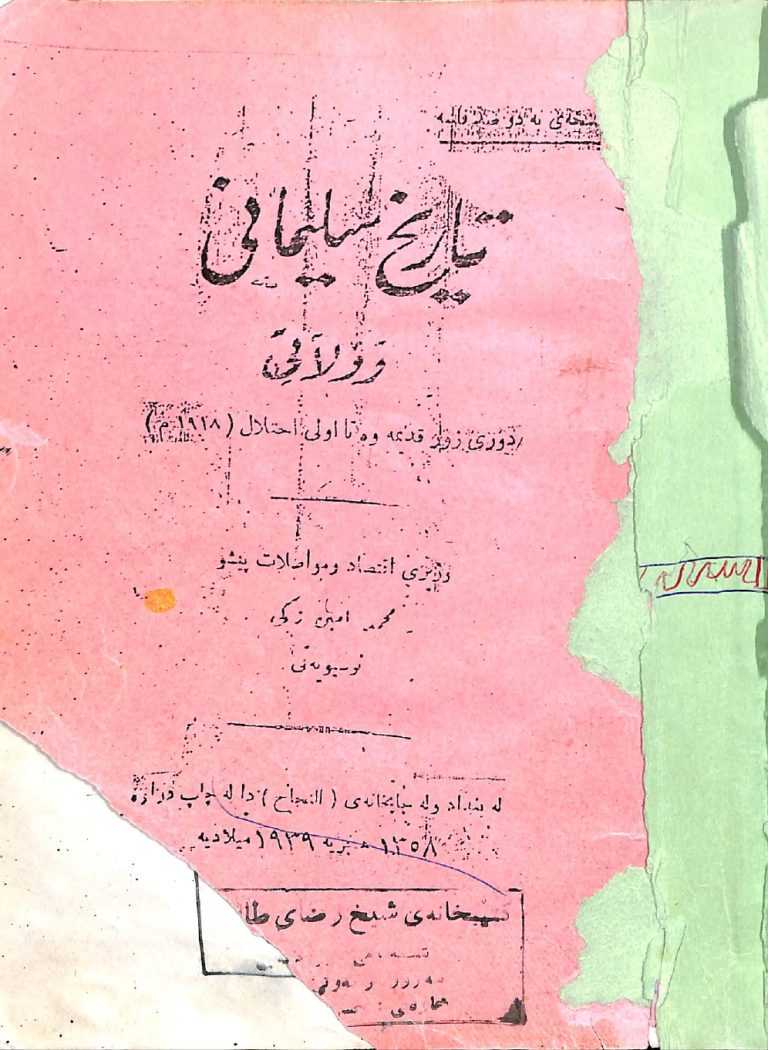 تاریخ سلیمانی
وولاتی
دوری زور قدیمه وه تا اولی احتلال (١٩١٨ م)
وزیری اقتصاد ومواصلات پیشو
محمد امین زکی
نوسیویەتی
له بغداد وله چاپخانەی (النجاح) دا له چاپ دراوه
١٣٥٨ هجریه ١٩٣٩ میلادیه
کتێبخانەی شیخ رضای